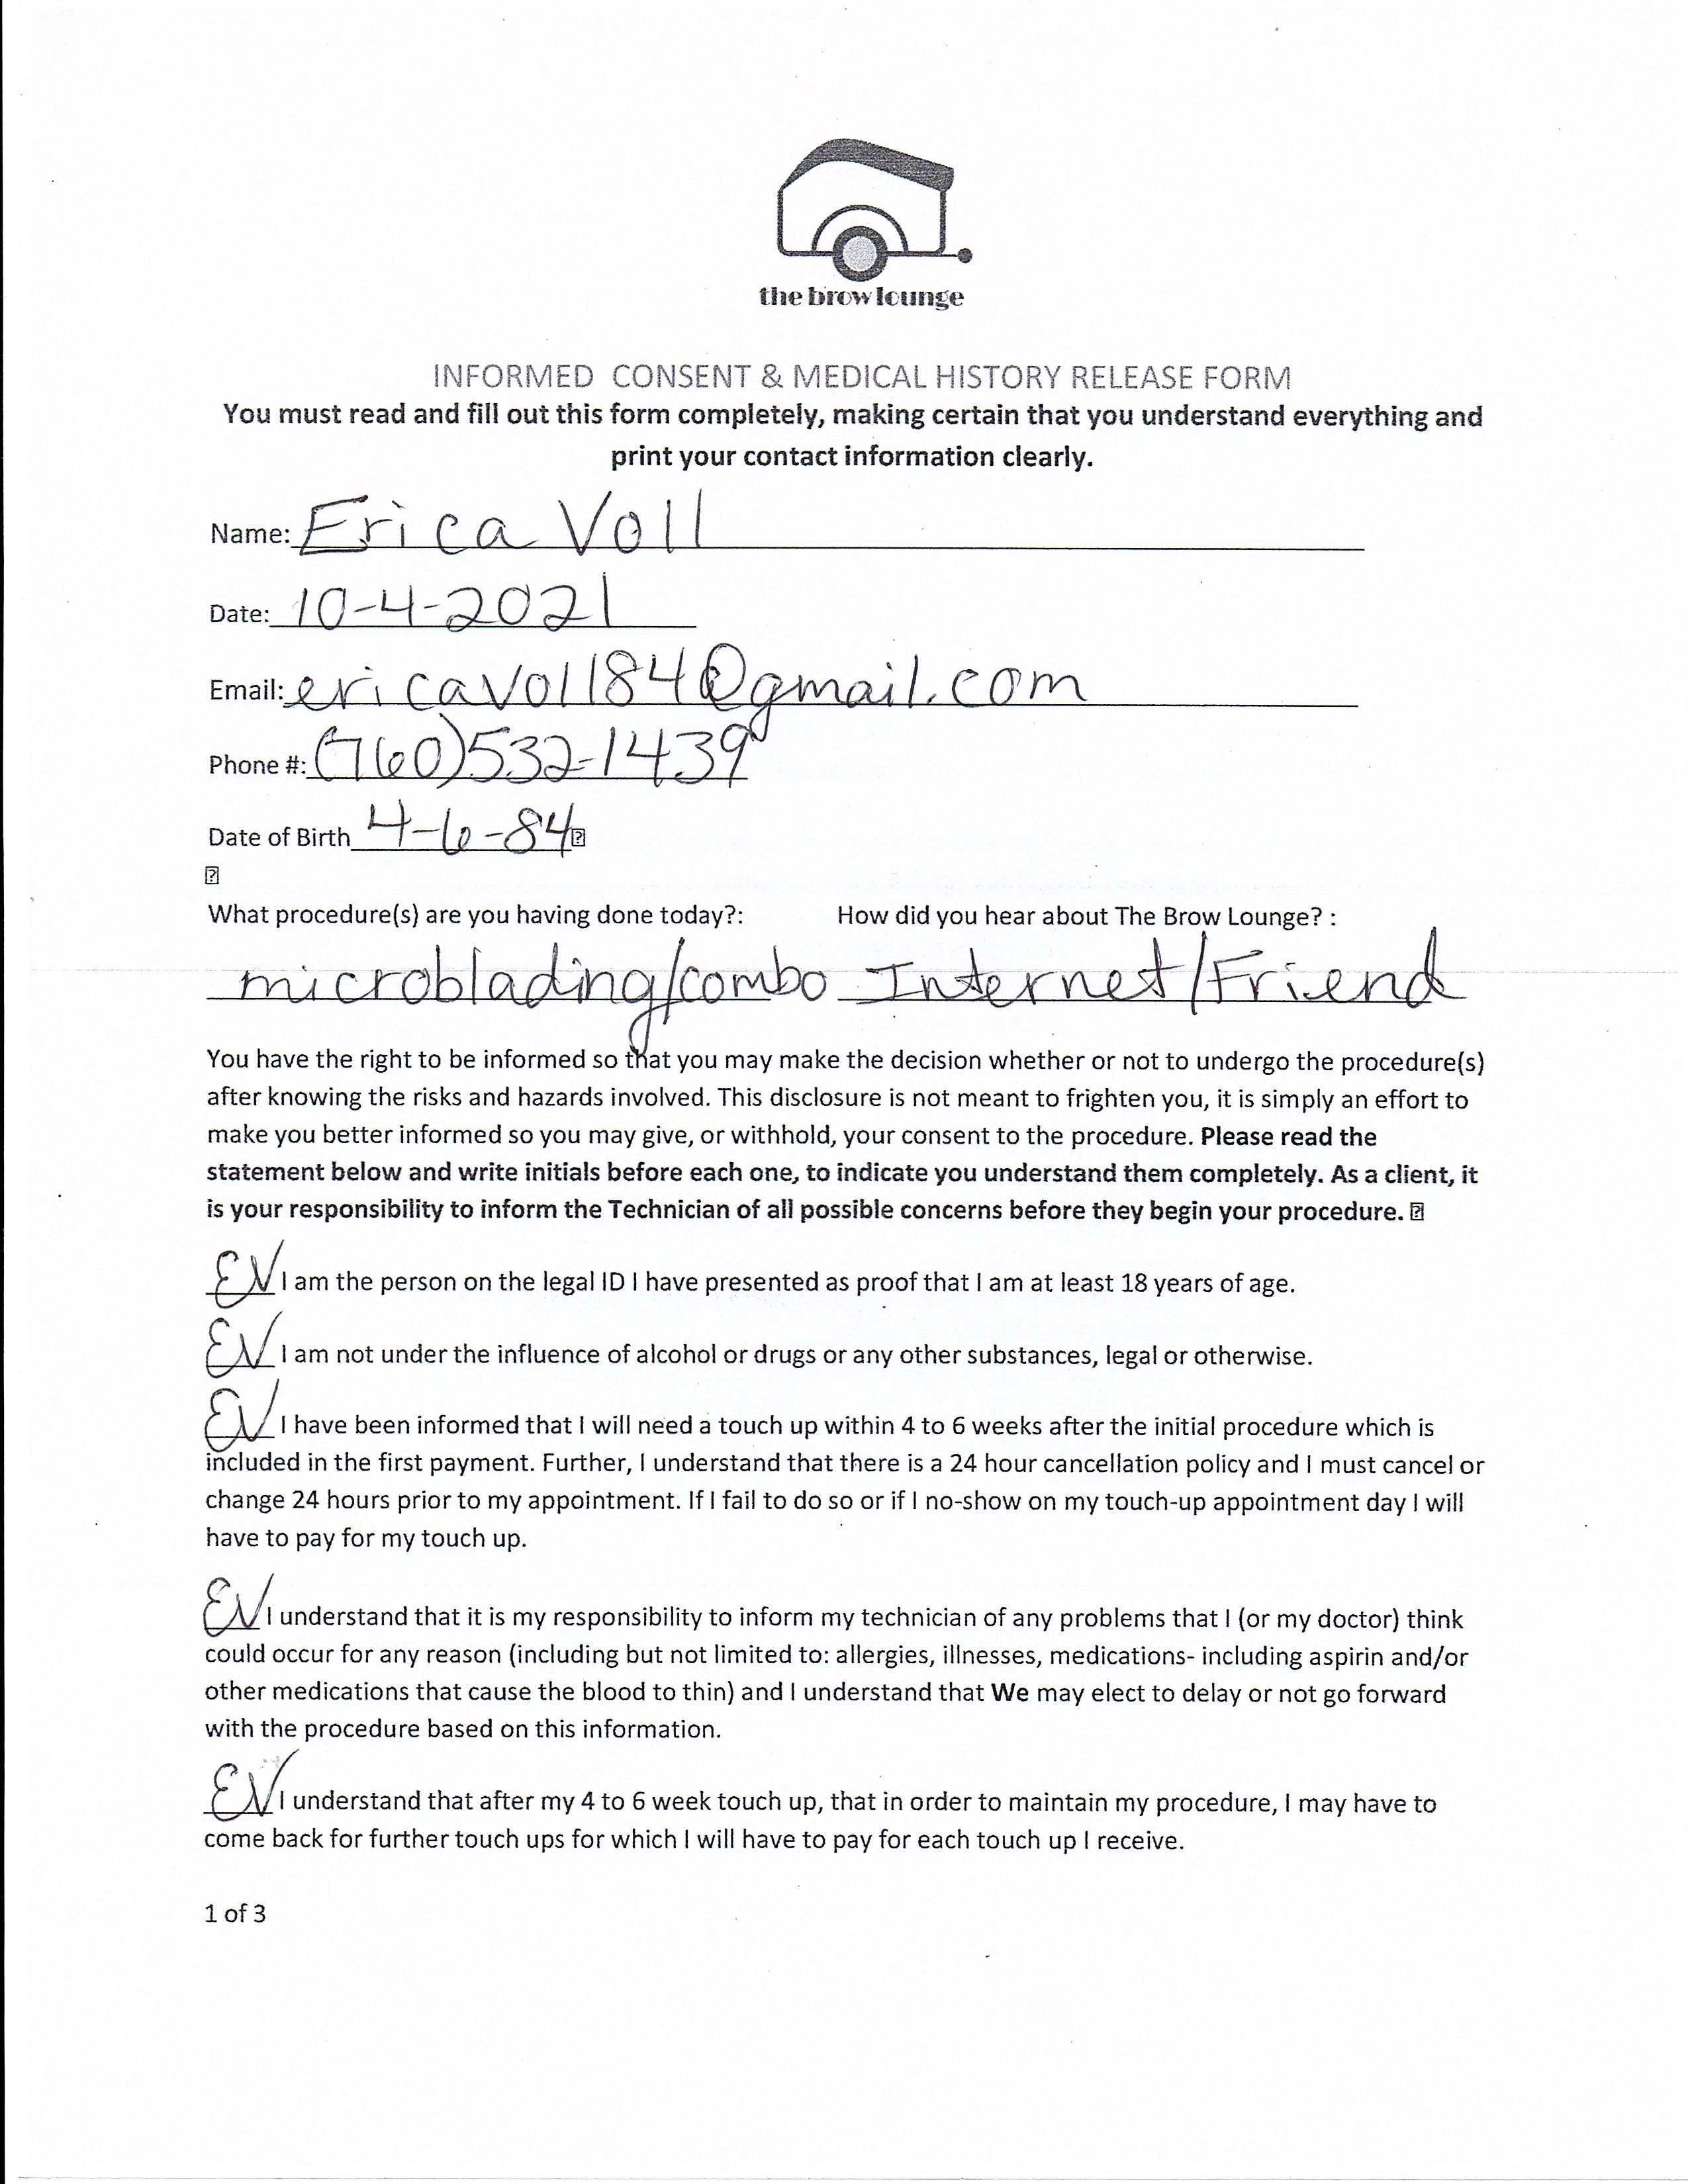 the brow lounge
INFORMED CONSENT & MEDICAL HISTORY RELEASE FORM
You must read and fill out this form completely, making certain that you understand everything and
print your contact information clearly.
Name: Erica Voll
Date: 10-4-2021
Email: ericavoll84@gmail.com
Phone #: (760)532-1439
Date of Birth 4-6-84
What procedure(s) are you having done today?: How did you hear about The Brow Lounge? :
microblading/combo Internet/Friend
You have the right to be informed so that you may make the decision whether or not to undergo the procedure(s)
after knowing the risks and hazards involved. This disclosure is not meant to frighten you, it is simply an effort to
make you better informed so you may give, or withhold, your consent to the procedure. Please read the
statement below and write initials before each one, to indicate you understand them completely. As a client, it
is your responsibility to inform the Technician of all possible concerns before they begin your procedure.
EV I am the person on the legal ID I have presented as proof that I am at least 18 years of age.
EV I am not under the influence of alcohol or drugs or any other substances, legal or otherwise.
EV I have been informed that I will need a touch up within 4 to 6 weeks after the initial procedure which is
included in the first payment. Further, I understand that there is a 24 hour cancellation policy and I must cancel or
change 24 hours prior to my appointment. If I fail to do so or if I no-show on my touch-up appointment day I will
have to pay for my touch up.
EV I understand that it is my responsibility to inform my technician of any problems that I (or my doctor) think
could occur for any reason (including but not limited to: allergies, illnesses, medications- including aspirin and/or
other medications that cause the blood to thin) and I understand that We may elect to delay or not go forward
with the procedure based on this information.
EV I understand that after my 4 to 6 week touch up, that in order to maintain my procedure, I may have to
come back for further touch ups for which I will have to pay for each touch up I receive.
1 of 3